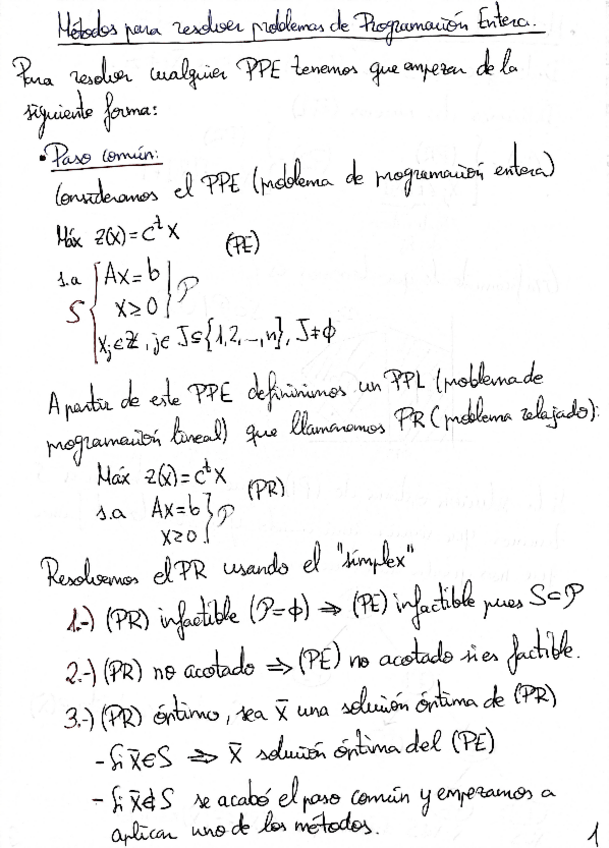 Métodos para resolver problemas de Programación Entera.
Para resolver cualquier PPE tenemos que empezar de la
siguiente forma:
• Paso común:
Consideramos el PPE (problema de programación entera)
Máx z(x)=cᵗx (PE)
s.a Ax=b
S x≥0 P
xⱼ∈ℤ, j∈J⊆{1,2,...,n}, J≠ϕ
A partir de este PPE definimos un PPL (problema de
programación lineal) que llamaremos PR (problema relajado):
Máx z(x)=cᵗx (PR)
s.a Ax=b P
x≥0
Resolvemos el PR usando el "simplex"
1.-) (PR) infactible (P=ϕ) ⇒ (PE) infactible pues S⊂P
2.-) (PR) no acotado ⇒ (PE) no acotado si es factible.
3.-) (PR) óptimo, sea x̄ una solución óptima de (PR)
- Si x̄∈S ⇒ x̄ solución óptima del (PE)
- Si x̄∉S se acabó el paso común y empezamos a
aplicar uno de los métodos.
1